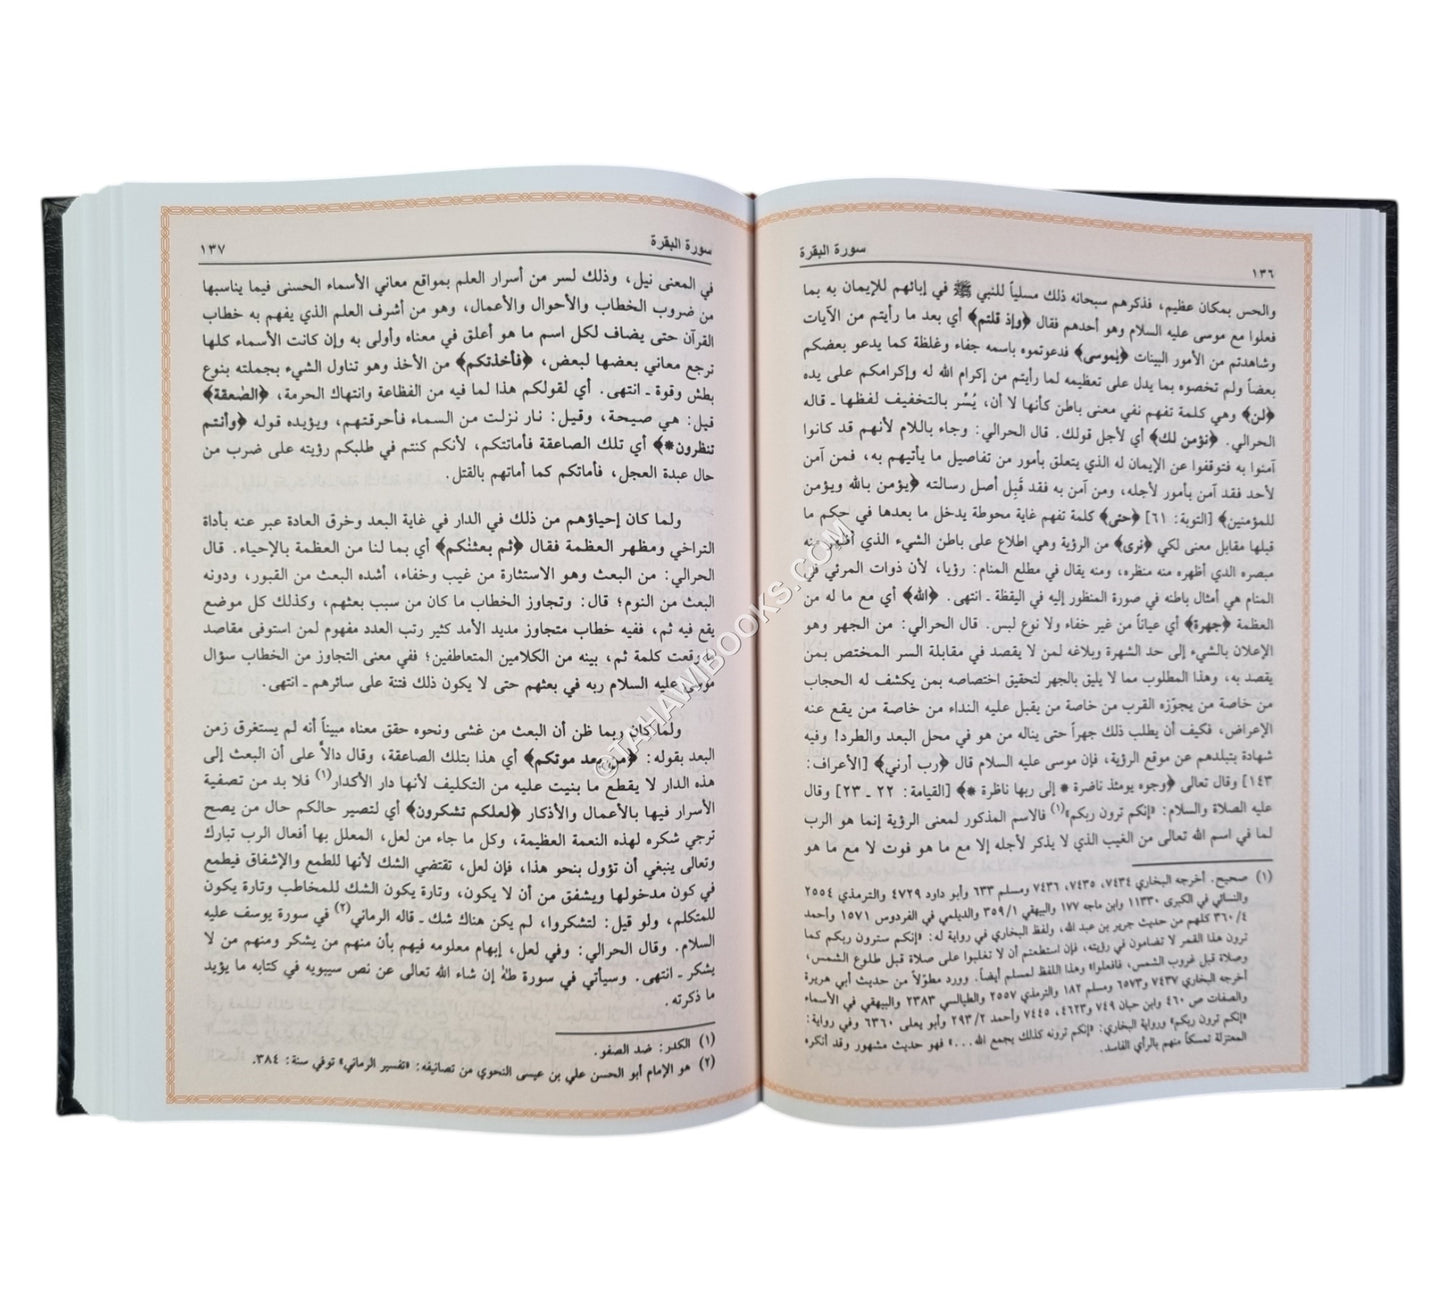 ١٣٦
سورة البقرة
والحس بمكان عظيم، فذكرهم سبحانه ذلك مسلياً للنبي ﷺ في إبائهم للإيمان به بما
فعلوا مع موسى عليه السلام وهو أحدهم فقال ﴿وإذ قلتم﴾ أي بعد ما رأيتم من الآيات
وشاهدتم من الأمور البينات ﴿يٰموسى﴾ فدعوتموه باسمه جفاء وغلظة كما يدعو بعضكم
بعضاً ولم تخصوه بما يدل على تعظيمه لما رأيتم من إكرام الله له وإكرامكم على يده
﴿لن﴾ وهي كلمة تفهم نفي معنى باطن كأنها لا أن، يُسِّر بالتخفيف لفظها ـ قاله
الحرالي. ﴿نؤمن لك﴾ أي لأجل قولك. قال الحرالي: وجاء باللام لأنهم قد كانوا
آمنوا به فتوقفوا عن الإيمان له الذي يتعلق بأمور من تفاصيل ما يأتيهم به، فمن آمن
لأحد فقد آمن بأمور لأجله، ومن آمن به فقد قَبِل أصل رسالته ﴿يؤمن بالله ويؤمن
للمؤمنين﴾ [التوبة: ٦١] ﴿حتى﴾ كلمة تفهم غاية محوطة يدخل ما بعدها في حكم ما
قبلها مقابل معنى لكي ﴿نرى﴾ من الرؤية وهي اطلاع على باطن الشيء الذي أظهر منه
مبصره الذي أظهره منه منظره، ومنه يقال في مطلع المنام: رؤيا، لأن ذوات المرئي في
المنام هي أمثال باطنه في صورة المنظور إليه في اليقظة ـ انتهى. ﴿الله﴾ أي مع ما له من
العظمة ﴿جهرة﴾ أي عياناً من غير خفاء ولا نوع لبس. قال الحرالي: من الجهر وهو
الإعلان بالشيء إلى حد الشهرة وبلاغه لمن لا يقصد في مقابلة السر المختص بمن
يقصد به، وهذا المطلوب مما لا يليق بالجهر لتحقيق اختصاصه بمن يكشف له الحجاب
من خاصة من يجوّزه القرب من خاصة من يقبل عليه النداء من خاصة من يقع عنه
الإعراض، فكيف أن يطلب ذلك جهراً حتى يناله من هو في محل البعد والطرد! وفيه
شهادة بتبلدهم عن موقع الرؤية، فإن موسى عليه السلام قال ﴿رب أرني﴾ [الأعراف:
١٤٣] وقال تعالى ﴿وجوه يومئذ ناضرة * إلى ربها ناظرة *﴾ [القيامة: ٢٢ ـ ٢٣] وقال
عليه الصلاة والسلام: «إنكم ترون ربكم»(١) فالاسم المذكور لمعنى الرؤية إنما هو الرب
لما في اسم الله تعالى من الغيب الذي لا يذكر لأجله إلا مع ما هو فوت لا مع ما هو
(١) صحيح. أخرجه البخاري ٧٤٣٤، ٧٤٣٥، ٧٤٣٦ ومسلم ٦٣٣ وأبو داود ٤٧٢٩ والترمذي ٢٥٥٤
والنسائي في الكبرى ١١٣٣٠ وابن ماجه ١٧٧ والبيهقي ٣٥٩/١ والديلمي في الفردوس ١٥٧١ وأحمد
٣٦٠/٤ كلهم من حديث جرير بن عبد الله، ولفظ البخاري في رواية له: «إنكم سترون ربكم كما
ترون هذا القمر لا تضامون في رؤيته، فإن استطعتم أن لا تغلبوا على صلاة قبل طلوع الشمس،
وصلاة قبل غروب الشمس، فافعلوا» وهذا اللفظ لمسلم أيضاً. وورد مطوّلاً من حديث أبي هريرة
أخرجه البخاري ٧٤٣٧ و٦٥٧٣ ومسلم ١٨٢ والترمذي ٢٥٥٧ والطيالسي ٢٣٨٣ والبيهقي في الأسماء
والصفات ص ٤٦٠ وابن حبان ٧٤٩ و٤٦٢٣، ٧٤٤٥ وأحمد ٢٩٣/٢ وأبو يعلى ٦٣٦٠ وفي رواية:
«إنكم ترون ربكم» ورواية البخاري: «إنكم ترونه كذلك يجمع الله...» فهو حديث مشهور وقد أنكره
المعتزلة تمسكاً منهم بالرأي الفاسد.
سورة البقرة
١٣٧
في المعنى نيل، وذلك لسر من أسرار العلم بمواقع معاني الأسماء الحسنى فيما يناسبها
من ضروب الخطاب والأحوال والأعمال، وهو من أشرف العلم الذي يفهم به خطاب
القرآن حتى يضاف لكل اسم ما هو أعلق في معناه وأولى به وإن كانت الأسماء كلها
ترجع معاني بعضها لبعض، ﴿فأخذتكم﴾ من الأخذ وهو تناول الشيء بجملته بنوع
بطش وقوة ـ انتهى. أي لقولكم هذا لما فيه من الفظاعة وانتهاك الحرمة، ﴿الصٰعقة﴾
قيل: هي صيحة، وقيل: نار نزلت من السماء فأحرقتهم، ويؤيده قوله ﴿وأنتم
تنظرون *﴾ أي تلك الصاعقة فأماتتكم، لأنكم كنتم في طلبكم رؤيته على ضرب من
حال عبدة العجل، فأماتكم كما أماتهم بالقتل.
ولما كان إحياؤهم من ذلك في الدار في غاية البعد وخرق العادة عبر عنه بأداة
التراخي ومظهر العظمة فقال ﴿ثم بعثنٰكم﴾ أي بما لنا من العظمة بالإحياء. قال
الحرالي: من البعث وهو الاستثارة من غيب وخفاء، أشده البعث من القبور، ودونه
البعث من النوم؛ قال: وتجاوز الخطاب ما كان من سبب بعثهم، وكذلك كل موضع
يقع فيه ثم، ففيه خطاب متجاوز مديد الأمد كثير رتب العدد مفهوم لمن استوفى مقاصد
ما وقعت كلمة ثم، بينه من الكلامين المتعاطفين؛ ففي معنى التجاوز من الخطاب سؤال
موسى عليه السلام ربه في بعثهم حتى لا يكون ذلك فتنة على سائرهم ـ انتهى.
ولما كان ربما ظن أن البعث من غشى ونحوه حقق معناه مبيناً أنه لم يستغرق زمن
البعد بقوله: ﴿من بعد موتكم﴾ أي هذا بتلك الصاعقة، وقال دالاً على أن البعث إلى
هذه الدار لا يقطع ما بنيت عليه من التكليف لأنها دار الأكدار(١) فلا بد من تصفية
الأسرار فيها بالأعمال والأذكار ﴿لعلكم تشكرون﴾ أي لتصير حالكم حال من يصح
ترجي شكره لهذه النعمة العظيمة، وكل ما جاء من لعل، المعلل بها أفعال الرب تبارك
وتعالى ينبغي أن تؤول بنحو هذا، فإن لعل، تقتضي الشك لأنها للطمع والإشفاق فيطمع
في كون مدخولها ويشفق من أن لا يكون، وتارة يكون الشك للمخاطب وتارة يكون
للمتكلم، ولو قيل: لتشكروا، لم يكن هناك شك ـ قاله الرماني(٢) في سورة يوسف عليه
السلام. وقال الحرالي: وفي لعل، إبهام معلومه فيهم بأن منهم من يشكر ومنهم من لا
يشكر ـ انتهى. وسيأتي في سورة طه إن شاء الله تعالى عن نص سيبويه في كتابه ما يؤيد
ما ذكرته.
(١) الكدر: ضد الصفو.
(٢) هو الإمام أبو الحسن علي بن عيسى النحوي من تصانيفه: «تفسير الرماني» توفي سنة: ٣٨٤.
©TAHAWIBOOKS.COM